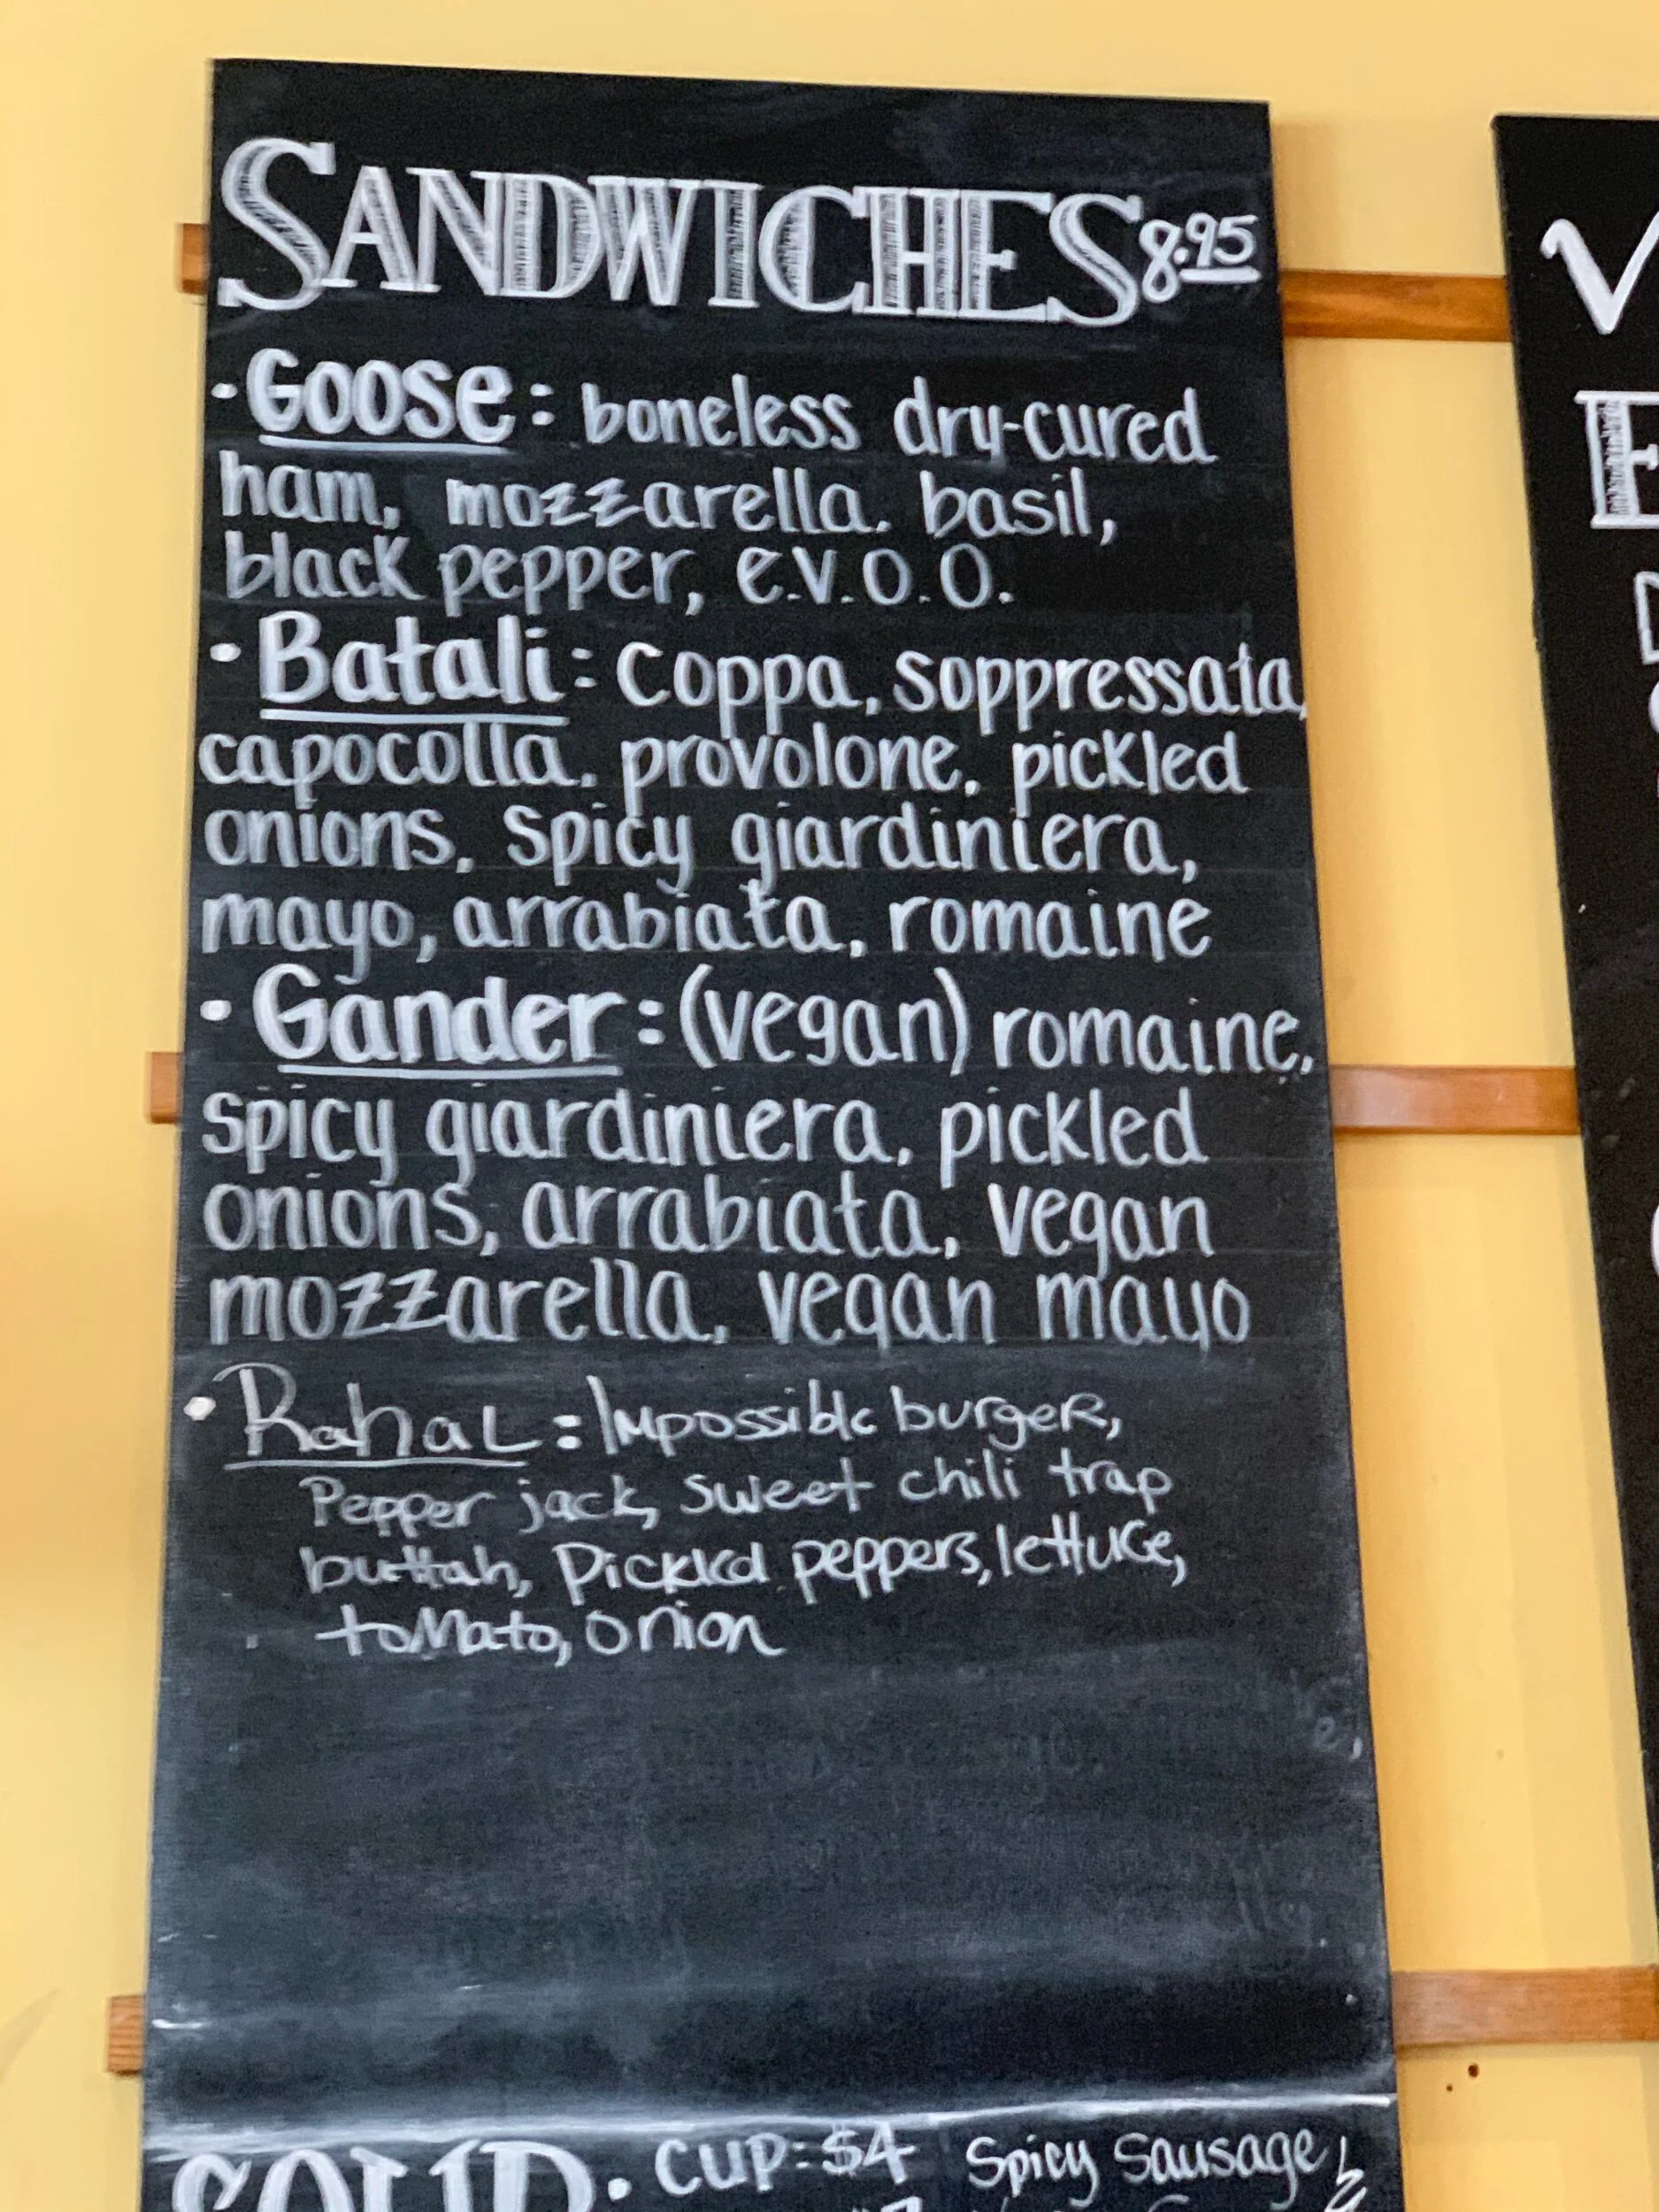 SANDWICHES 8.95
·Goose: boneless dry-cured
ham, mozzarella. basil,
black pepper, e.v.o.o.
·Batali: Coppa, soppressata,
capocolla, provolone, pickled
onions, spicy giardiniera,
mayo, arrabiata, romaine
·Gander:(vegan) romaine,
spicy giardiniera, pickled
onions, arrabiata, vegan
mozzarella, vegan mayo
·Rahal: Impossible burger,
Pepper jack, sweet chili trap
buttah, Pickled peppers, lettuce,
tomato, onion
SOUP · CUP: $4 Spicy Sausage,